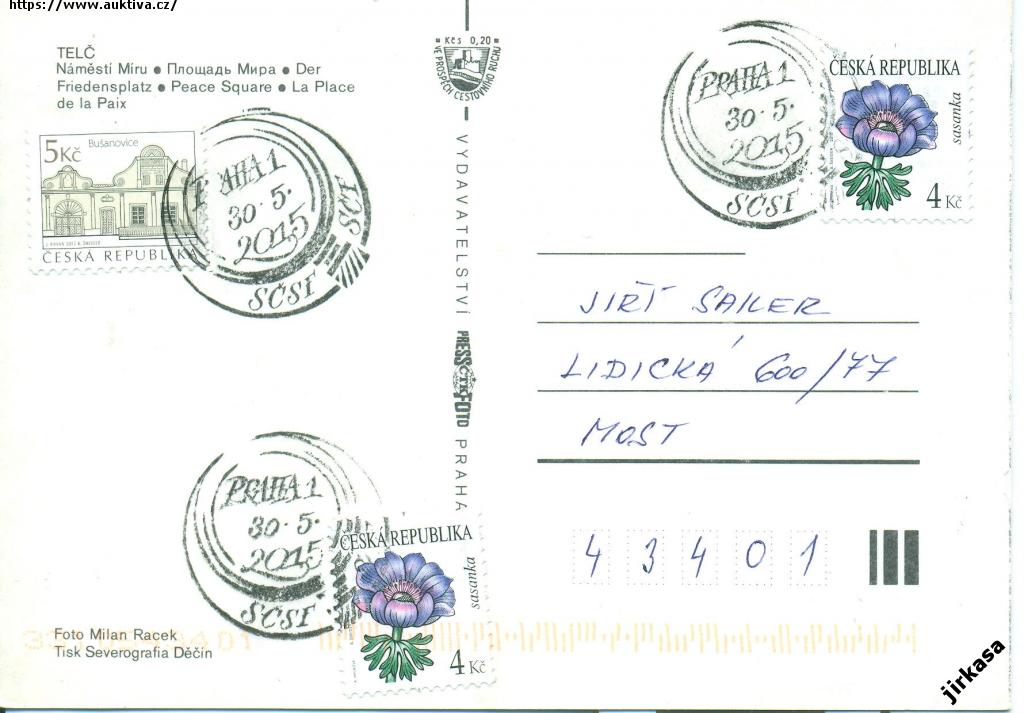 https://www.auktiva.cz/
TELČ
Náměstí Míru ● Площадь Мира ● Der
Friedensplatz ● Peace Square ● La Place
de la Paix
Kčs 0,20
VE PROSPĚCH CESTOVNÍHO RUCHU
5Kč
Bušanovice
ČESKÁ REPUBLIKA
PRAHA 1
30·5·
2015
SČSF
PRAHA 1
30·5·
2015
SČSF
ČESKÁ REPUBLIKA
sasanka
4 Kč
VYDAVATELSTVÍ
PRESSFOTO
ČTK
PRAHA
JIŘÍ SAILER
LIDICKÁ 600/77
MOST
43401
PRAHA 1
30·5·
2015
SČSF
ČESKÁ REPUBLIKA
sasanka
4 Kč
Foto Milan Racek
Tisk Severografia Děčín
jirkasa